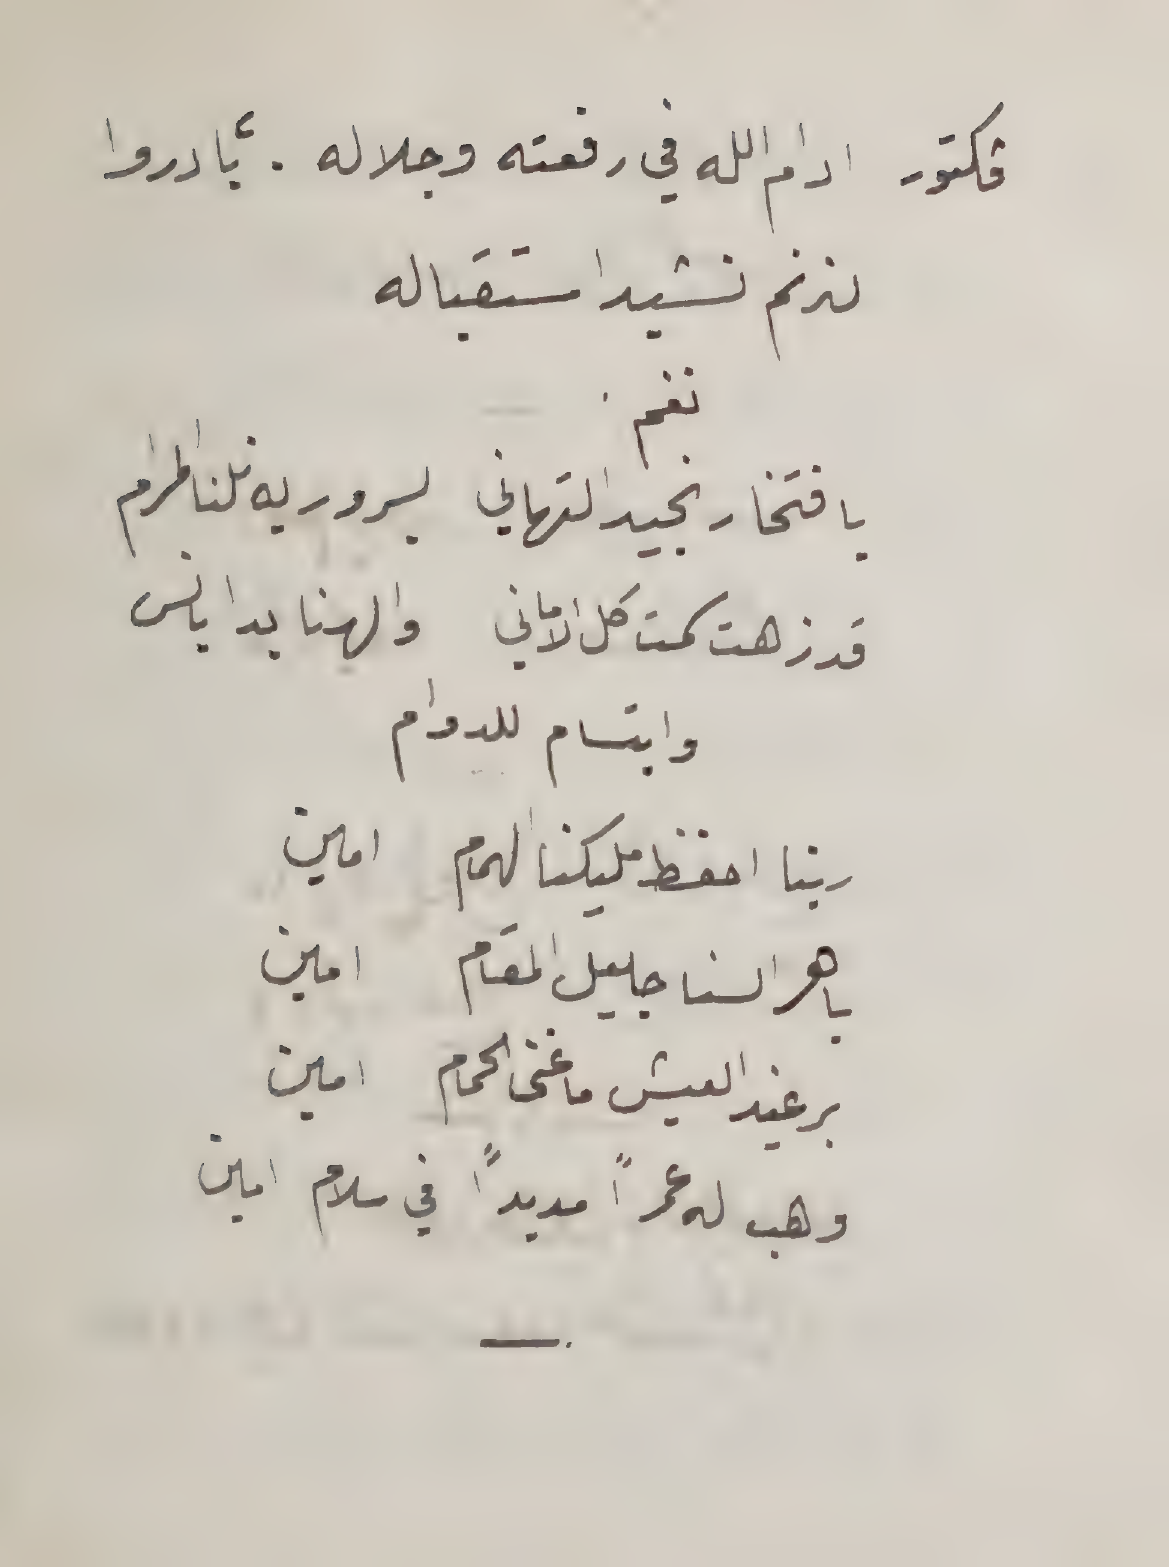 فكتور ادام الله في رفعته وجلاله . بادروا
نرنم نشيد استقباله
نغم
بافتخار نجيد التهاني بسرور به نلنا المرام
قد زهت كل الاماني والهنا بدا بانس
وابتسام للدوام
ربنا احفظ مليكنا الهمام امين
باهر السنا جليل المقام امين
برغيد العيش ما غنى الحمام امين
وهب له عمراً مديداً في سلام امين